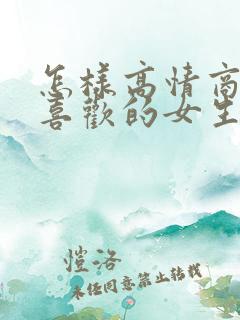 怎样高情商
喜歡的女生
愷洛
未经同意禁止转载